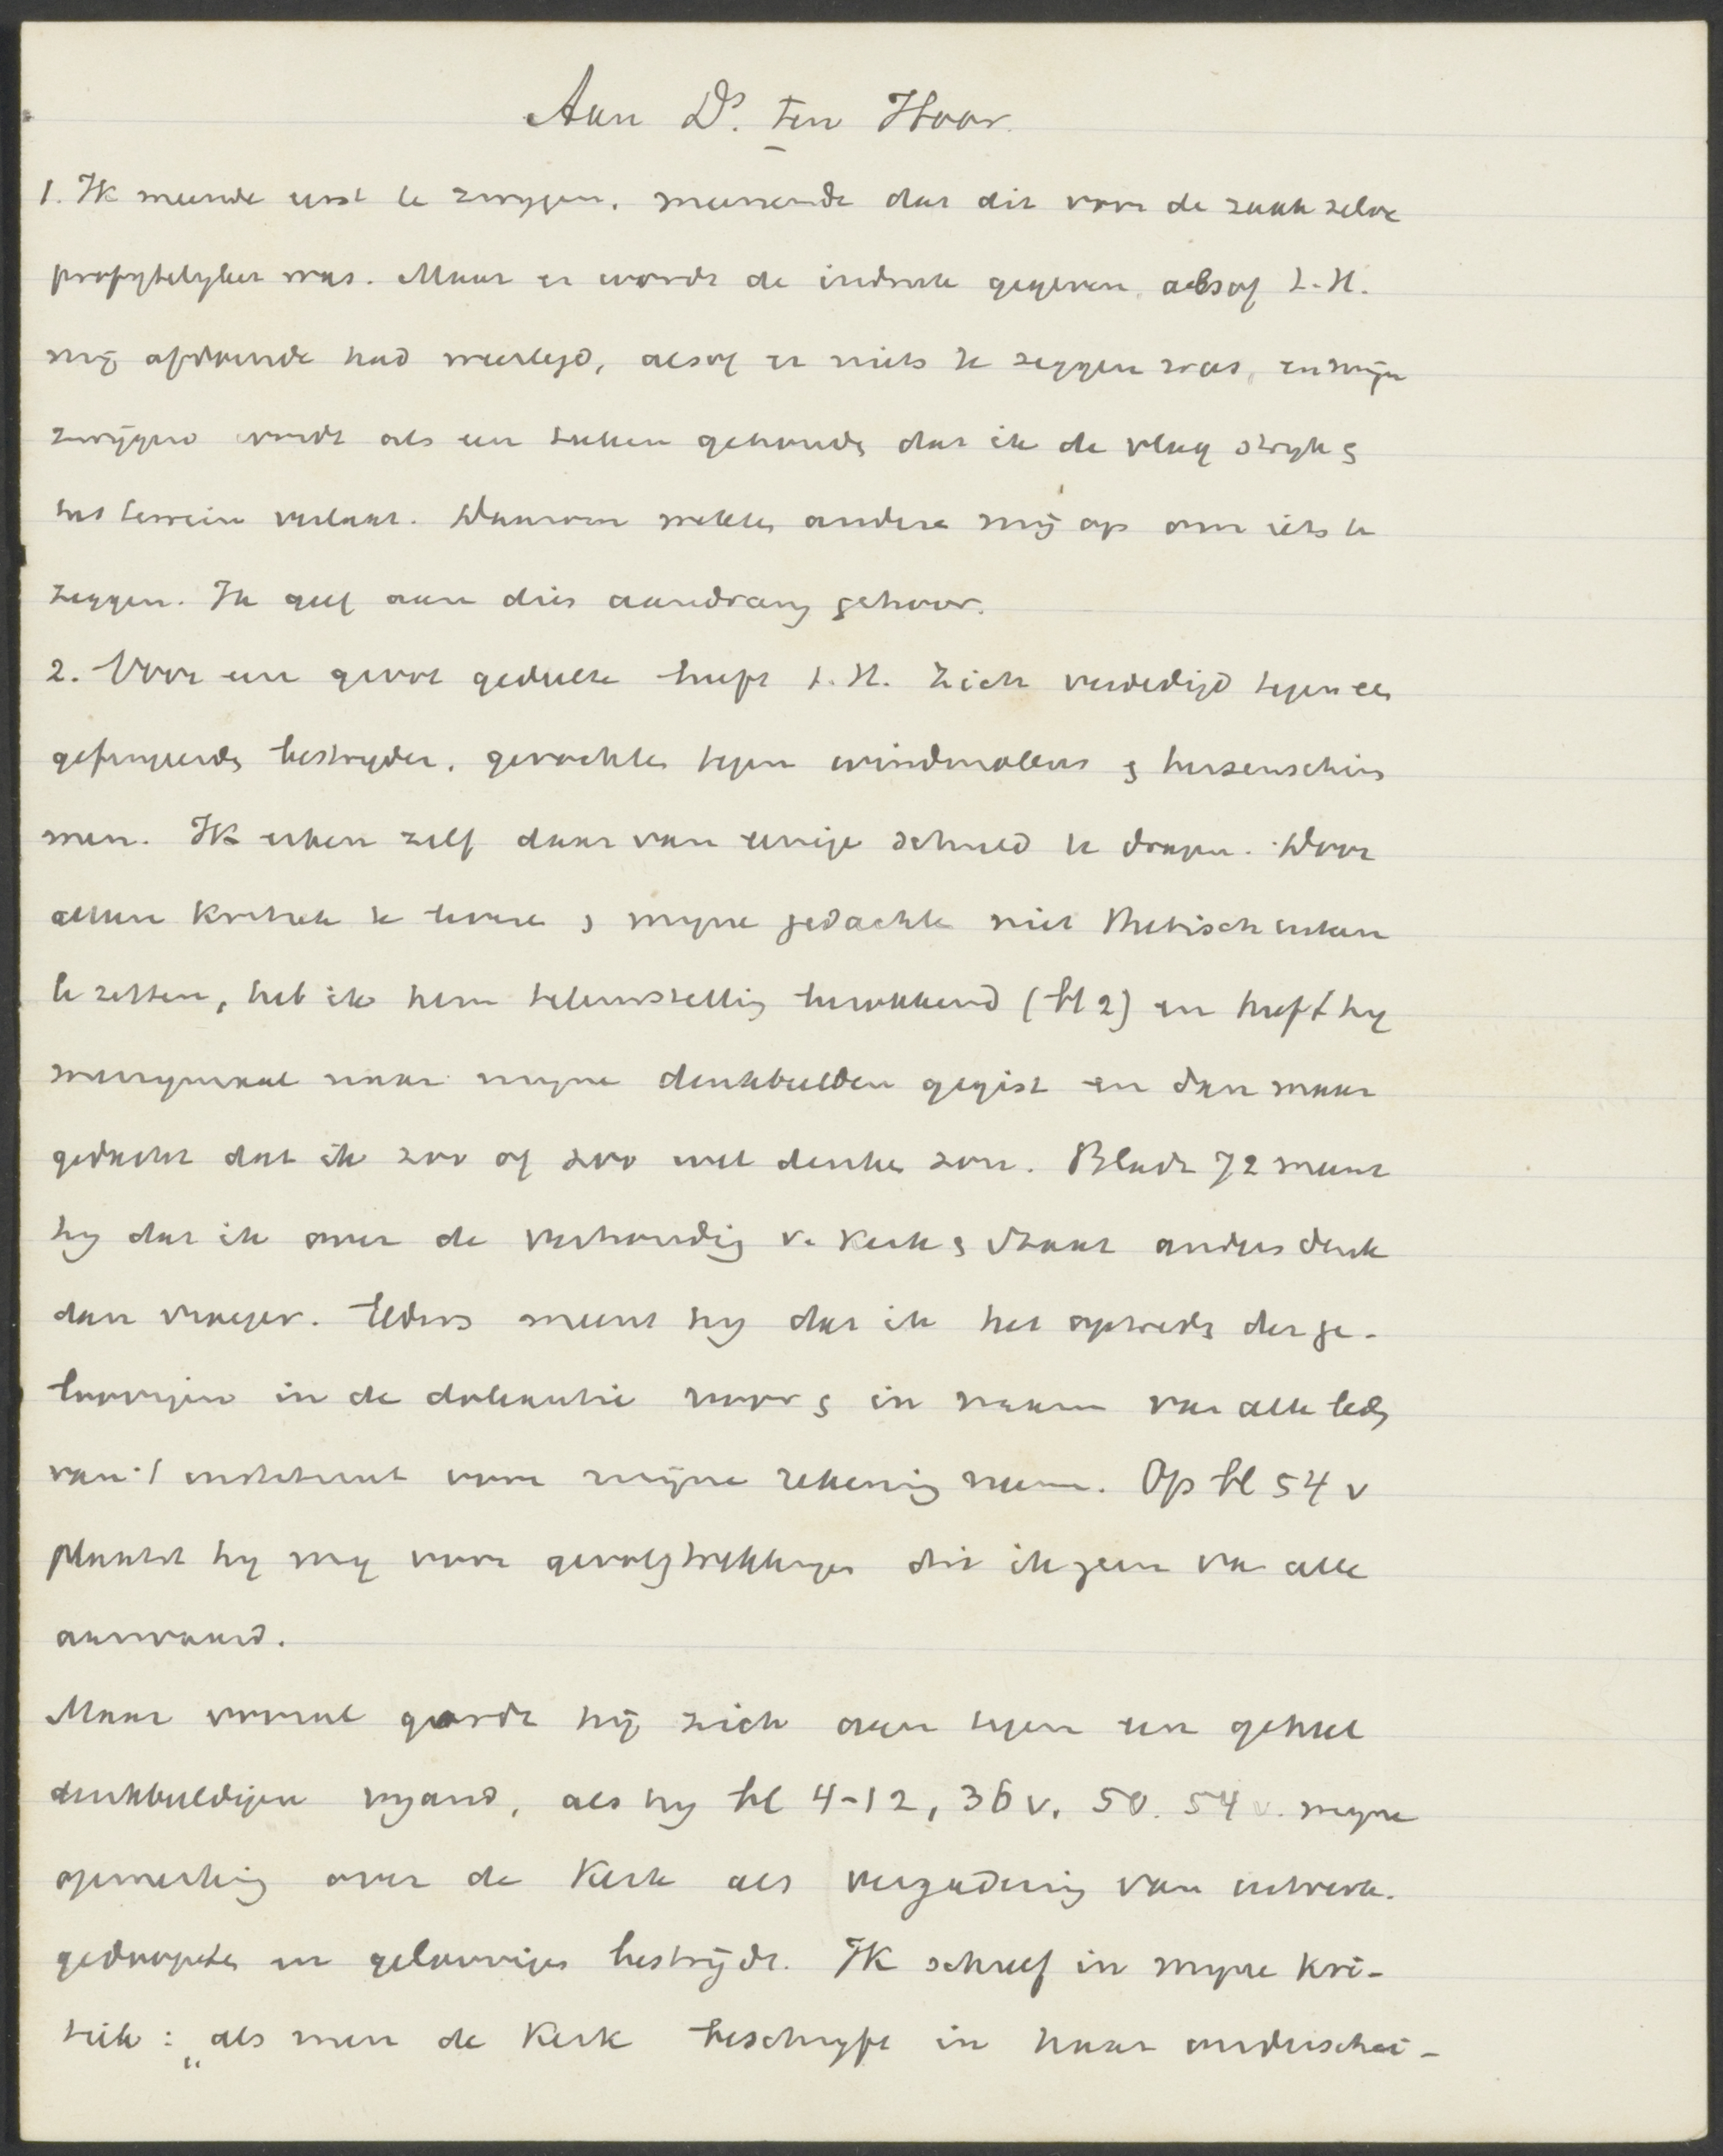 Aan Ds. ten Hoor.
1. Ik meende eerst te zwijgen, meenende dat dit voor de zaak zelve
profijtelijker was. Maar er wordt de indruk gegeven, alsof t. H.
mij afdoende had weerlegd, alsof er niets te zeggen was, en mijn
zwijgend wordt als een teeken gehouden dat ik de vlag strijk &
het terrein verlaat. Daarom wekken andere mij op om iets te
zeggen. Ik geef aan dien aandrang gehoor.
2. Voor een groot gedeelte heeft t. H. zich verdedigd tegen een
gefingeerden bestrijder, gevochten tegen windmolens & hersenschim
men. Ik erken zelf daarvan eenige schuld te dragen. Door
alleen kritiek te leveren & mijne gedachte niet thetisch uiteen
te zetten, heb ik hem teleurstellig (bl 2) en heeft hij
menigmaal naar mijne denkbeelden gegist en dan maar
gedacht dat ik zoo of zoo wel denken zou. Bladz 72 meent
hij dat ik over de verhouding v. Kerk & Staat anders denk
dan vroeger. Elders meent hij dat ik het optreden der ge-
loovigen in de doleantie voor & in naam van alle leden
van 't instituut voor mijne rekening neem. Op bl 54 v
plaatst hij mij voor gevolgtrekkingen die ik geen van alle
aanvaard.
Maar vooral gordt hij zich aan tegen een geheel
denkbeeldigen vijand, als hij bl 4-12, 36 v. 50. 54 v. mijne
opmerking over de Kerk als vergadering van uitverk.
gedoopten en geloovigen bestrijdt. Ik schreef in mijne kri-
tiek: „als men de Kerk beschrijft in haar onderschei-